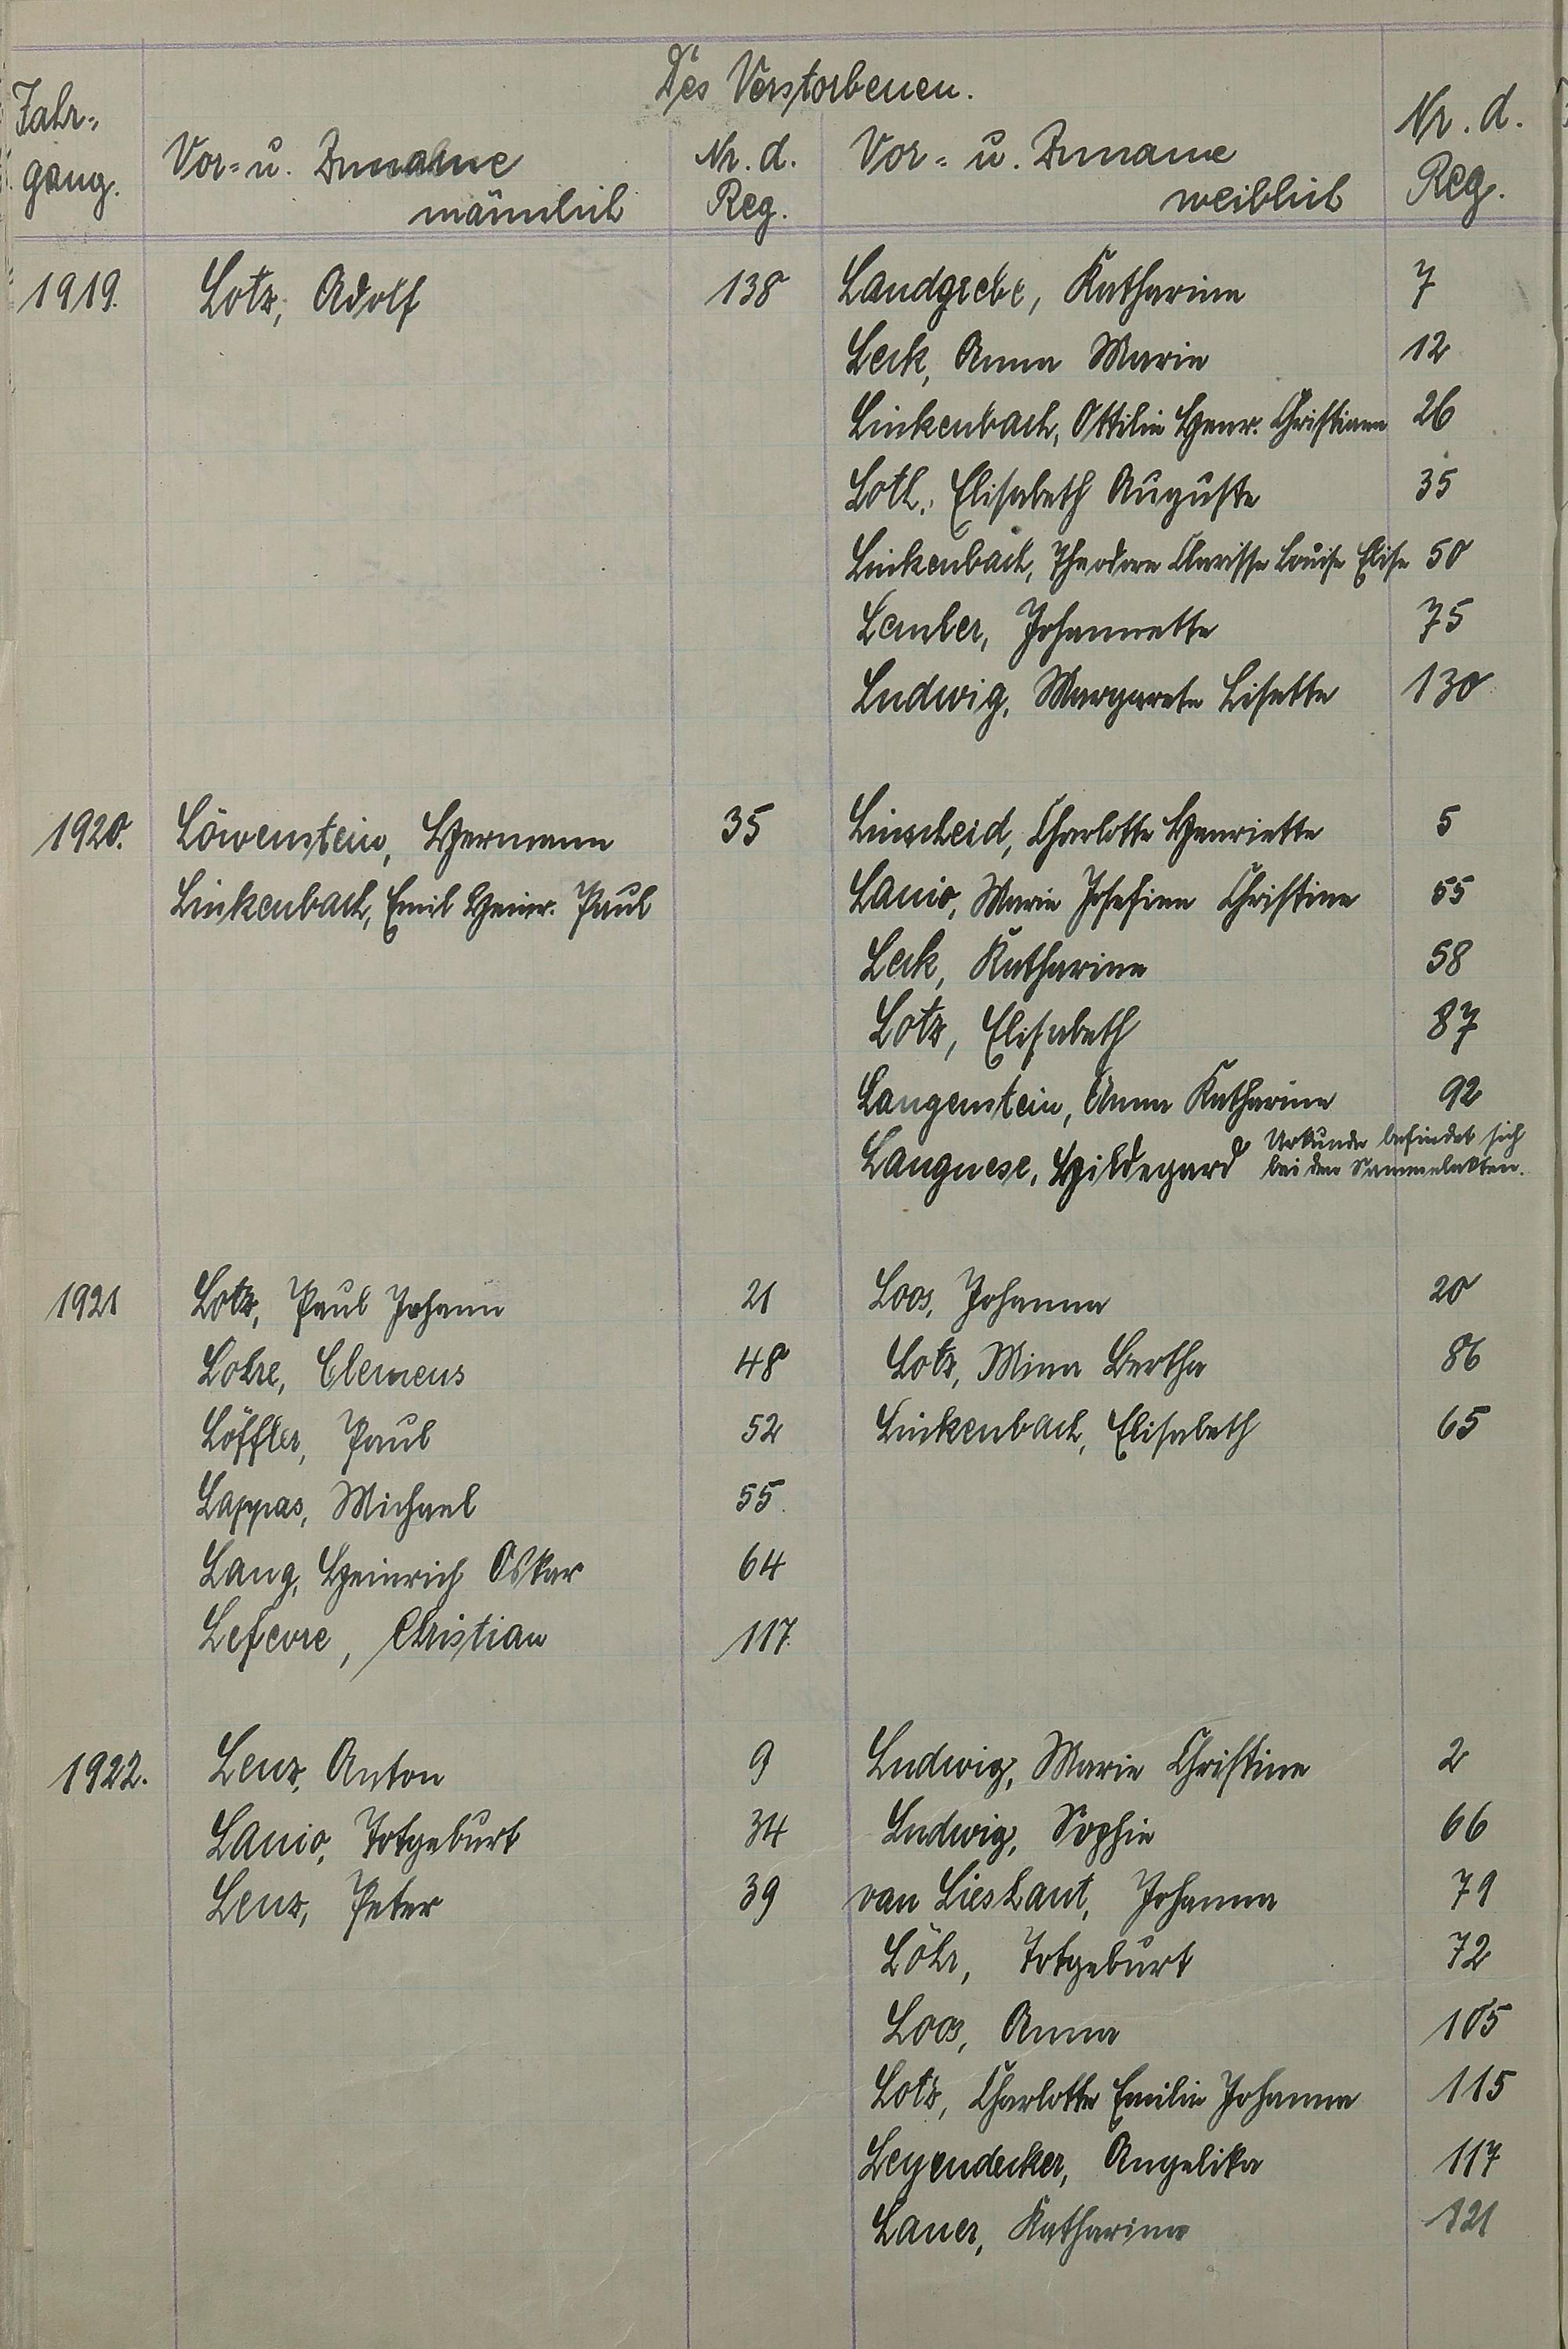 Des Verstorbenen.
Jahr=
gang.
Vor= u. Zuname
männlich
Nr. d.
Reg.
Vor= u. Zuname
weiblich
Nr. d.
Reg.
1919. Lotz, Adolf 138 Landgrebe, Katharina 7
Leck, Anna Marie 12
Linkenbach, Ottilie Henr. Christiane 26
Loth, Elisabeth Auguste 35
Linkenbach, Theodore Clarisse Louise Elise 50
Lember, Johannette 75
Ludwig, Margarete Lisette 130
1920. Löwenstein, Hermann 35 Linscheid, Charlotte Henriette 5
Linkenbach, Emil Heinr. Paul Lanio, Marie Josefine Christine 55
Leck, Katharina 58
Lotz, Elisabeth 87
Langenstein, Anna Katharina 92
Langnese, Hildegard Urkunde befindet sich
bei den Sammelakten.
1921 Lotz, Paul Johann 21 Loos, Johanna 20
Lohre, Clemens 48 Lotz, Mina Bertha 86
Löffler, Paul 52 Linkenbach, Elisabeth 65
Lappas, Michael 55.
Lang, Heinrich Oskar 64
Lefevre, Christian 117.
1922. Lenz, Anton 9 Ludwig, Marie Christine 2
Lanio, Totgeburt 34 Ludwig, Sophie 66
Lenz, Peter 39 van Lieshaut, Johanna 79
Löhr, Totgeburt 72
Loos, Anna 105
Lotz, Charlotte Emilie Johanna 115
Leyendecker, Angelika 117
Lauer, Katharina 121